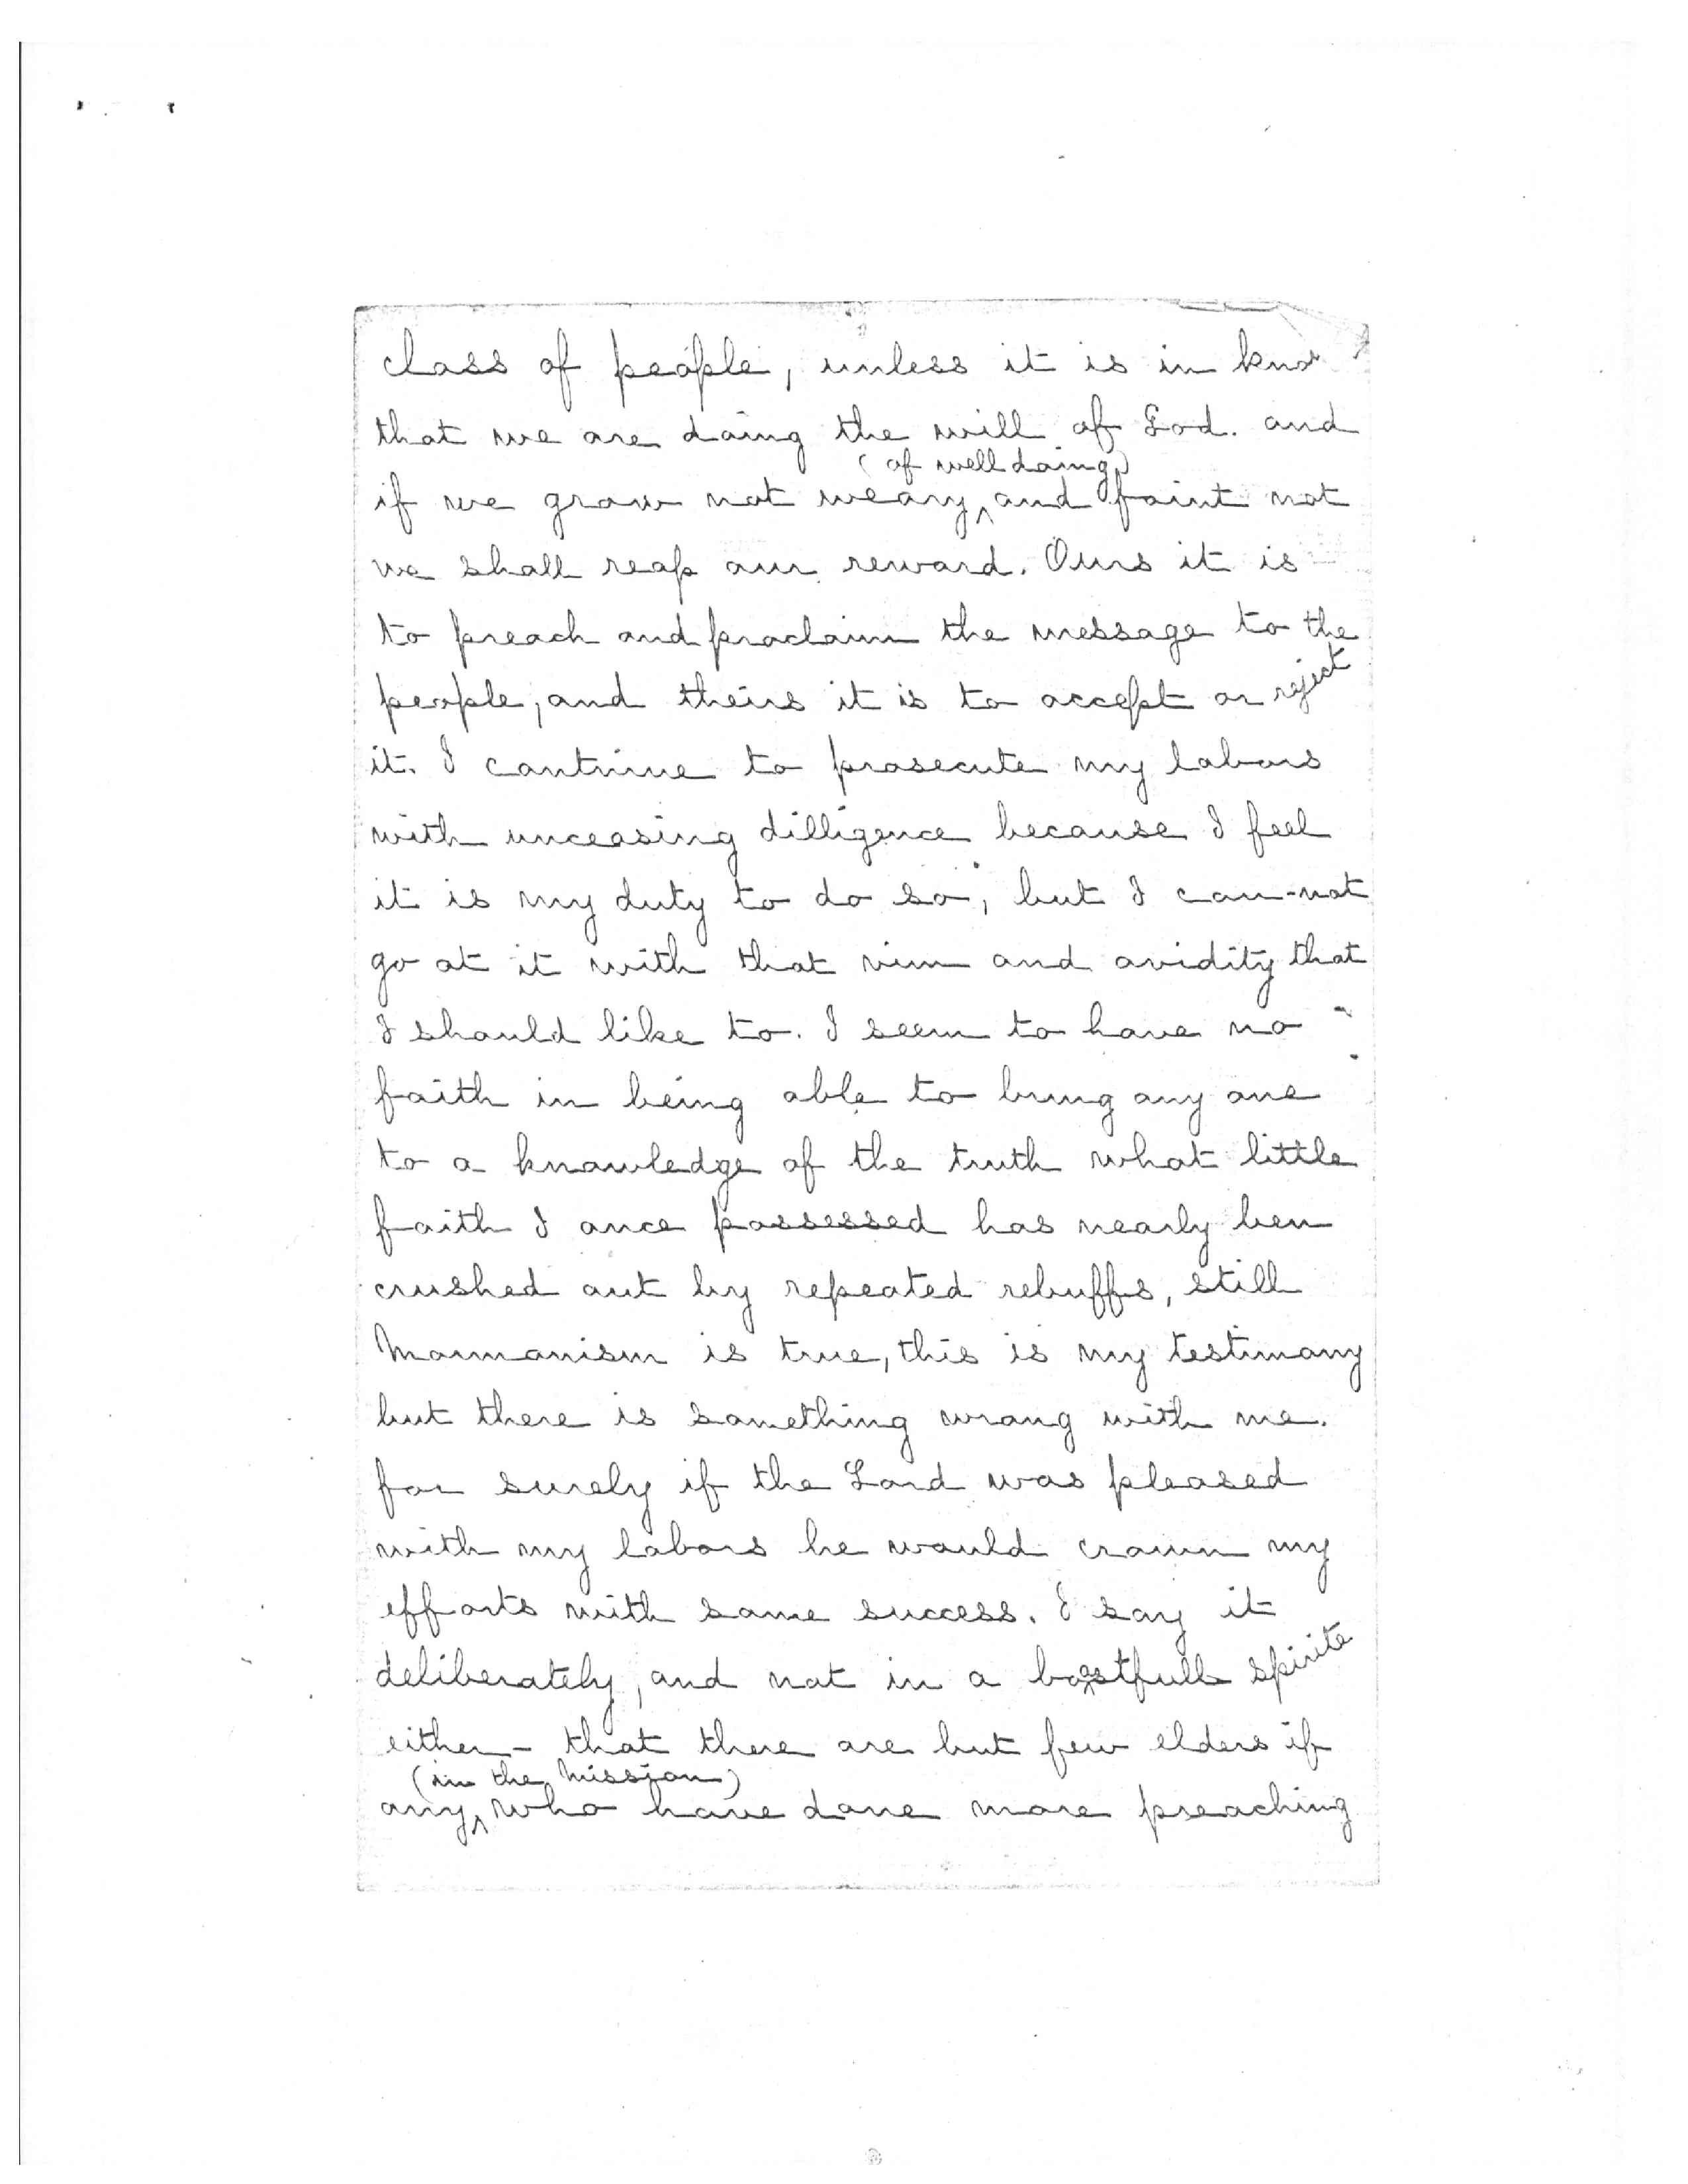 class of people, unless it is in know
that we are doing the will of God. and
(of well doing)
if we grow not weary, and faint not
we shall reap our reward. Ours it is
to preach and proclaim the message to the
people, and theirs it is to accept or reject
it. I continue to prosecute my labors
with unceasing dilligence because I feel
it is my duty to do so, but I can-not
go at it with that vim and avidity that
I should like to. I seem to have no
faith in being able to bring any one
to a knowledge of the truth what little
faith I once possessed has nearly ben
crushed out by repeated rebuffs, still
Mormonism is true, this is my testimony
but there is something wrong with me.
for surely if the Lord was pleased
with my labors he would crown my
efforts with some success. I say it
deliberately, and not in a boastfull spirite
either - that there are but few elders if
(in the mission)
any, who have done more preaching